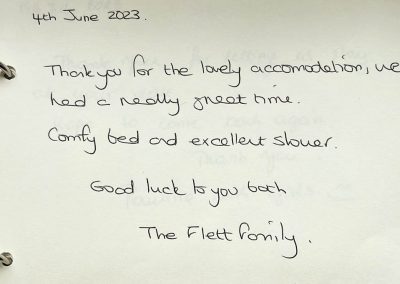 4th June 2023.
Thank you for the lovely accomodation, we
had a really great time.
Comfy bed and excellent shower.
Good luck to you both
The Flett Family.